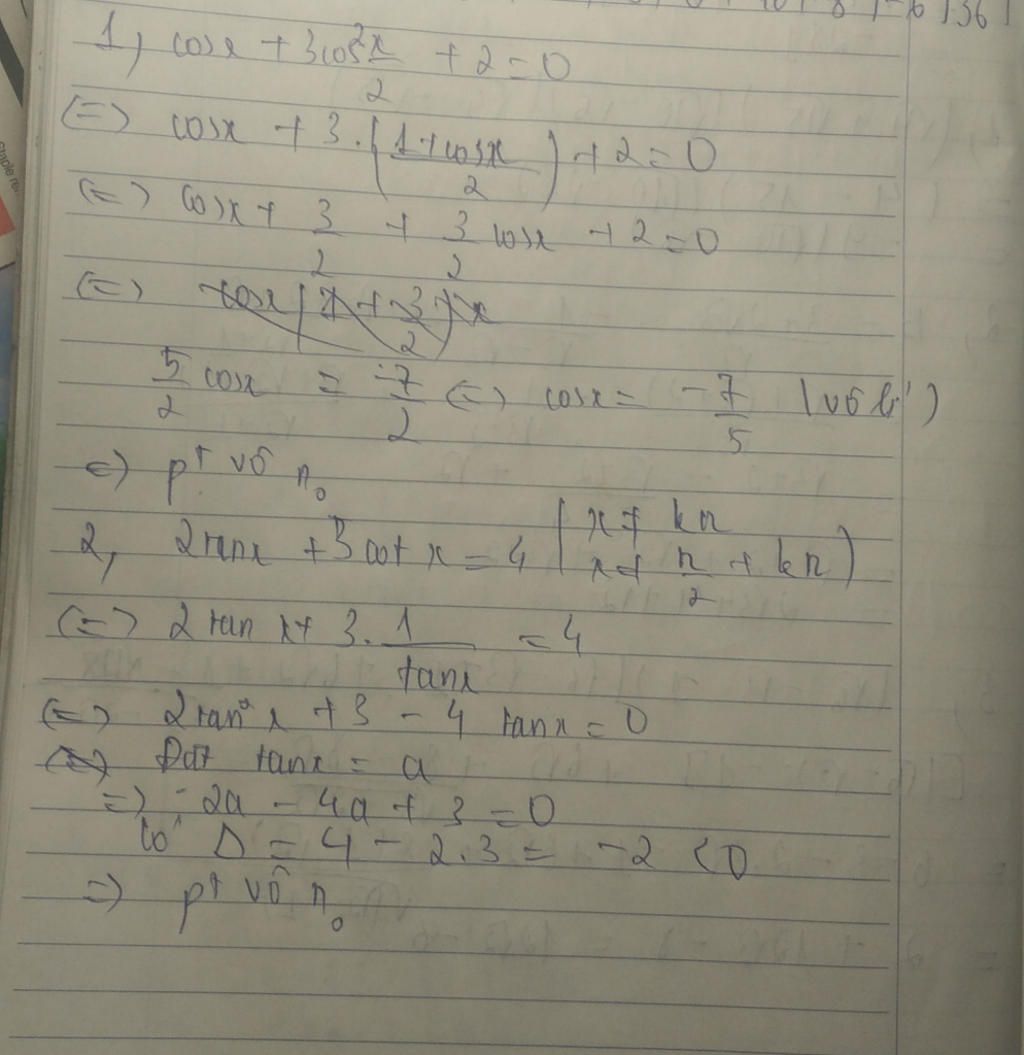 1, cosx + 3cos²x/2 + 2 = 0
(=) cosx + 3.(1+cosx/2) + 2 = 0
(=) cosx + 3/2 + 3/2 cosx + 2 = 0
(=)
5/2 cosx = -7/2 (=) cosx = -7/5 (vô lí)
=) pt vô n₀
2, 2tanx + 3cot x = 4 (x ≠ kπ x ≠ π/2 + kπ)
(=) 2tan x + 3. 1/tanx = 4
(=) 2tan²x + 3 - 4 tanx = 0
Đặt tanx = a
=) 2a - 4a + 3 = 0
Có Δ = 4 - 2.3 = -2 < 0
=) pt vô n₀